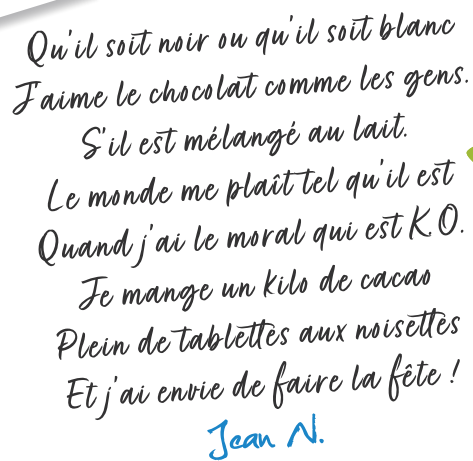 Qu'il soit noir ou qu'il soit blanc
J'aime le chocolat comme les gens.
S'il est mélangé au lait.
Le monde me plaît tel qu'il est
Quand j'ai le moral qui est K.O.
Je mange un kilo de cacao
Plein de tablettes aux noisettes
Et j'ai envie de faire la fête !
Jean N.